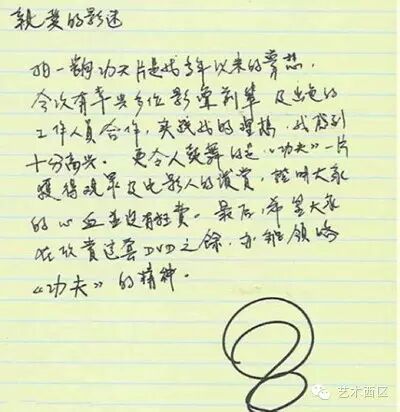 親愛的影迷
拍一齣功夫片是我多年以來的夢想.
今次有幸與多位影壇前輩及出色的
工作人員合作,實踐我的理想,我感到
十分高兴. 更令人鼓舞的是,《功夫》一片
獲得观眾及电影人的讚賞,證明大家
的心血並沒有枉費. 最后,希望大家
在欣賞這套DVD之餘,亦能領略
《功夫》的精神.
艺术西区